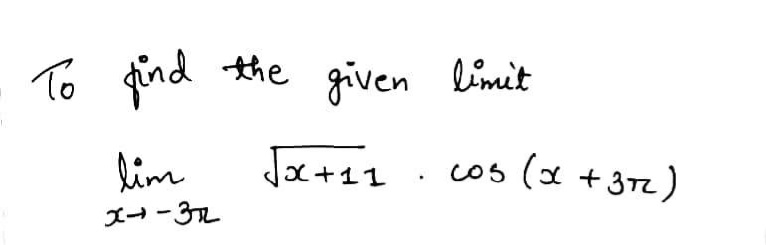 To find the given limit
lim √x+11 . cos (x + 3π)
x→ -3π